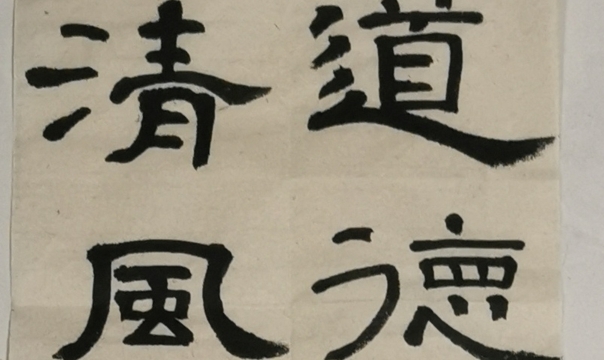 道德
清風